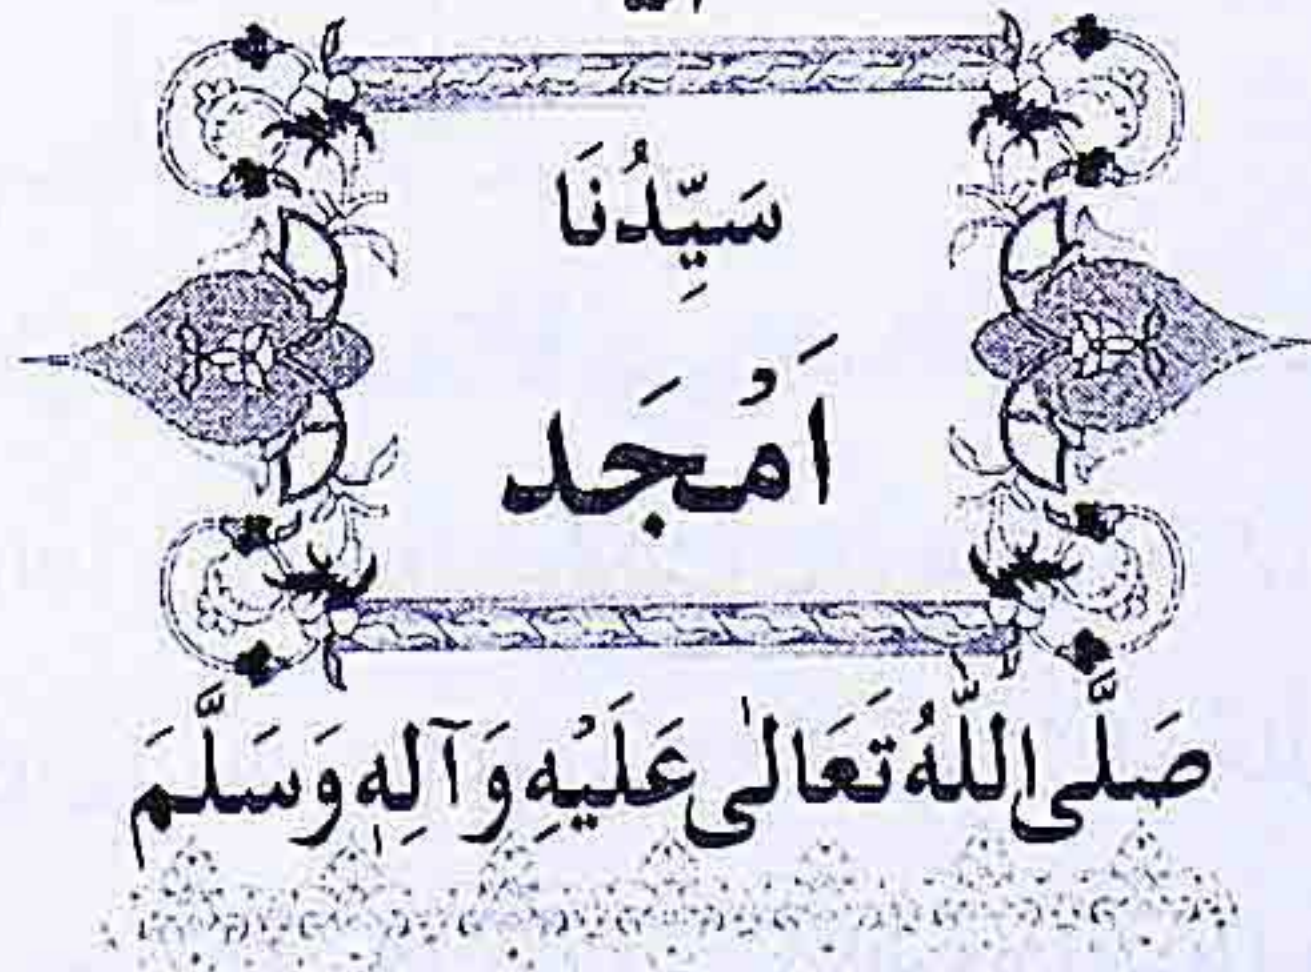 سَيِّدُنَا
اَمْجَد
صَلَّى اللّٰهُ تَعَالٰى عَلَيْهِ وَآلِهٖ وَسَلَّمَ